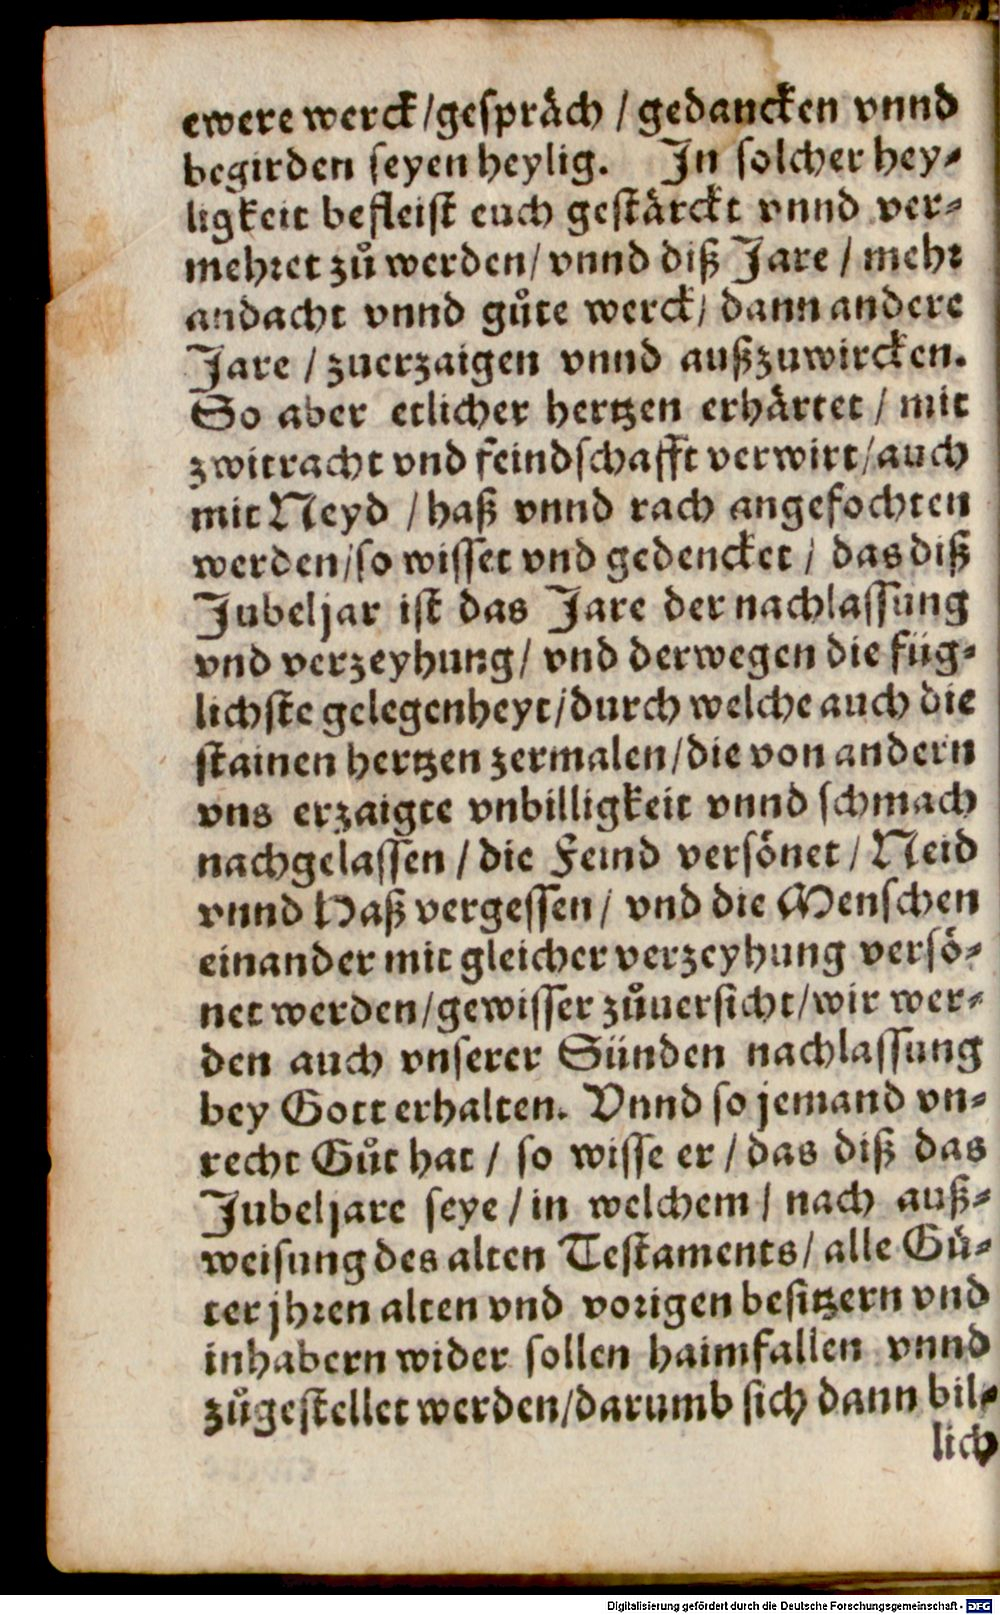 ewere werck/gespräch / gedancken vnnd
begirden seyen heylig. In solcher hey⸗
ligkeit befleist euch gestärckt vnnd ver⸗
mehret zů werden/ vnnd diß Jare / mehr
andacht vnnd gůte werck/ dann andere
Jare / zuerzaigen vnnd außzuwircken.
So aber etlicher hertzen erhärtet / mit
zwitracht vnd feindschafft verwirt/auch
mit Neyd / haß vnnd rach angefochten
werden/so wisset vnd gedencket / das diß
Jubeljar ist das Jare der nachlassung
vnd verzeyhung/ vnd derwegen die füg⸗
lichste gelegenheyt/durch welche auch die
stainen hertzen zermalen/die von andern
vns erzaigte vnbilligkeit vnnd schmach
nachgelassen / die Feind versönet / Neid
vnnd Haß vergessen/ vnd die Menschen
einander mit gleicher verzeyhung versö⸗
net werden/gewisser zůuersicht/wir wer⸗
den auch vnserer Sünden nachlassung
bey Gott erhalten. Vnnd so jemand vn⸗
recht Gůt hat / so wisse er / das diß das
Jubeljare seye / in welchem / nach auß⸗
weisung des alten Testaments/ alle Gü⸗
ter jhren alten vnd vorigen besitzern vnd
inhabern wider sollen haimfallen vnnd
zůgestellet werden/darumb sich dann bil⸗
lich
Digitalisierung gefördert durch die Deutsche Forschungsgemeinschaft - DFG